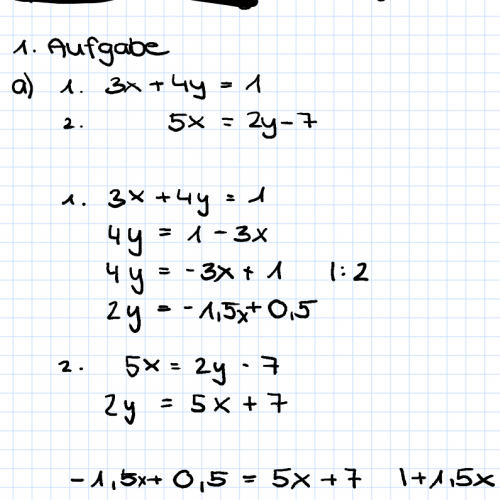 1. Aufgabe
a) 1. 3x + 4y = 1
2. 5x = 2y - 7
1. 3x + 4y = 1
4y = 1 - 3x
4y = -3x + 1 |: 2
2y = -1,5x + 0,5
2. 5x = 2y - 7
2y = 5x + 7
-1,5x + 0,5 = 5x + 7 |+1,5x